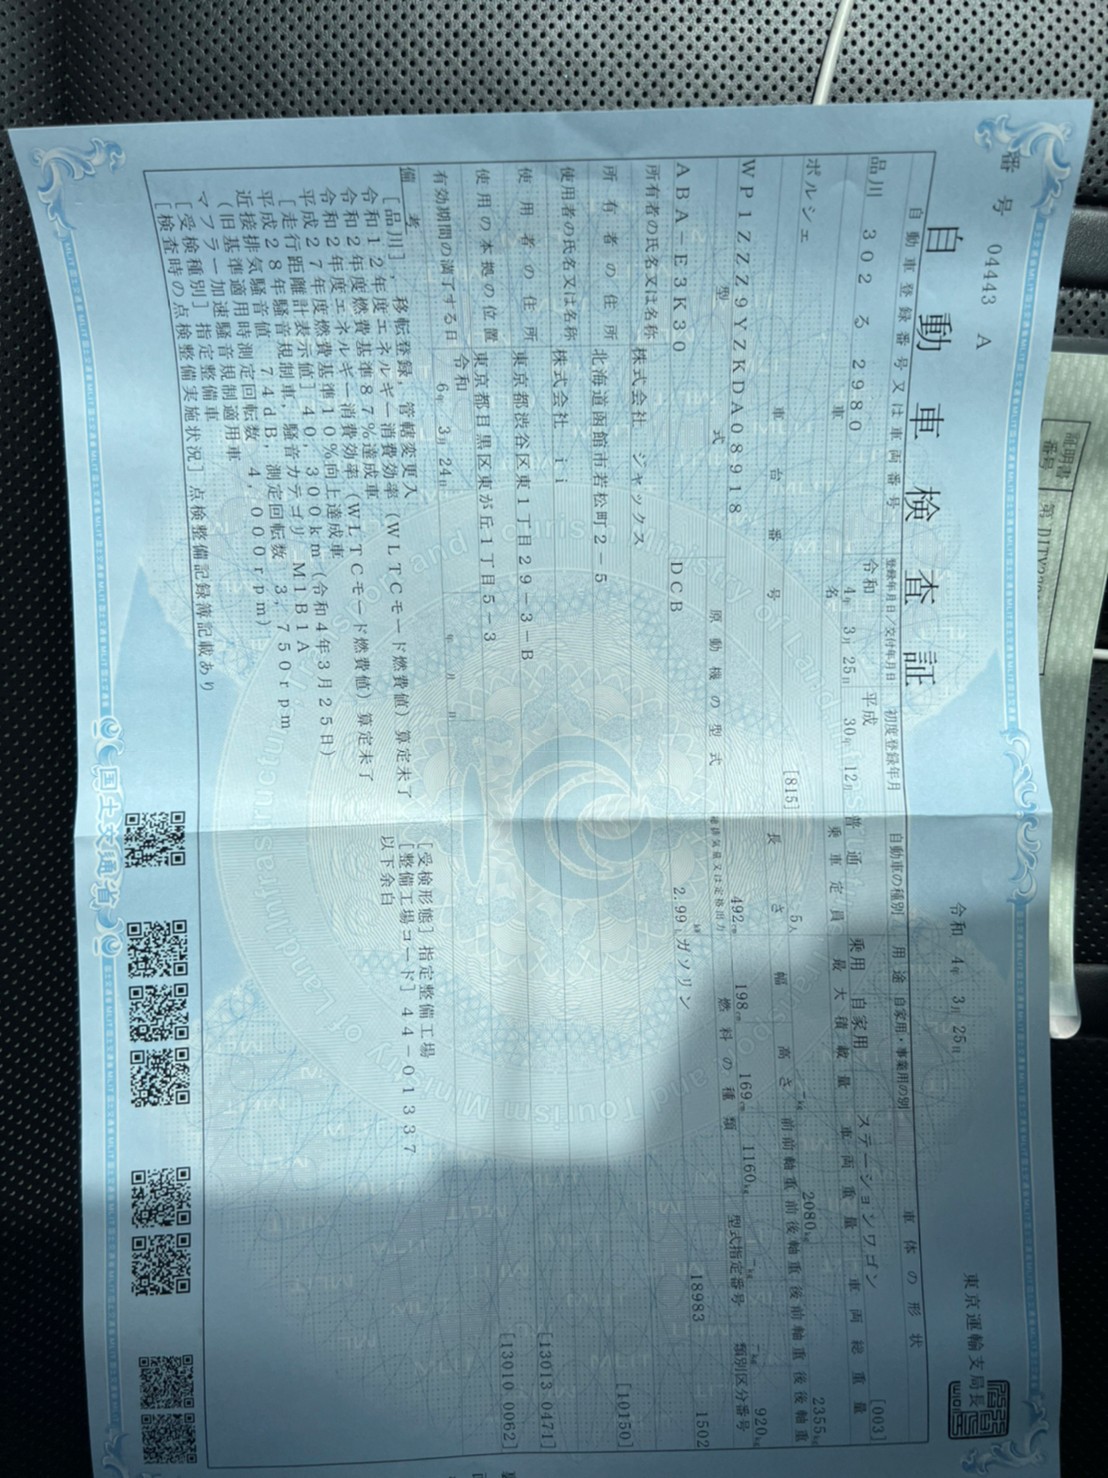 番号 04443 A
自動車検査証
令和 4年 3月 25日
東京運輸支局長
自動車登録番号又は車両番号 登録年月日/交付年月日 初度登録年月 自動車の種別 用途 自家用・事業用の別 車体の形状
品川 302 る 2980 令和 4年 3月 25日 平成 30年 12月 普通 乗用 自家用 ステーションワゴン [003]
車名 乗車定員 最大積載量 車両重量 車両総重量
ポルシェ [815] 5人 -kg 2080kg 2355kg
車台番号 長さ 幅 高さ 前前軸重 前後軸重 後前軸重 後後軸重
WP1ZZZ9YZKDA08918 492cm 198cm 169cm 1160kg -kg -kg 920kg
型式 原動機の型式 総排気量又は定格出力 燃料の種類 型式指定番号 類別区分番号
ABA-E3K30 DCB 2.99 kW L ガソリン 18983 1502
所有者の氏名又は名称 株式会社 ジャックス
所有者の住所 北海道函館市若松町2-5 [10150]
使用者の氏名又は名称 株式会社 ii
使用者の住所 東京都渋谷区東1丁目29-3-B [13013 0471]
使用の本拠の位置 東京都目黒区東が丘1丁目5-3 [13010 0062]
有効期間の満了する日 令和 6年 3月 24日 年 月 日
備考
[品川], 移転登録, 管轄変更入
令和12年度エネルギー消費効率(WLTCモード燃費値)算定未了
令和2年度燃費基準87%達成車
令和2年度エネルギー消費効率(WLTCモード燃費値)算定未了
平成27年度燃費基準10%向上達成車
[走行距離計表示値] 40,300km(令和4年3月25日)
平成28年騒音規制車, 騒音カテゴリ M1B1A
近接排気騒音値 74dB, 測定回転数 3,750rpm
(旧基準適用時測定回転数 4,500rpm)
マフラー加速騒音規制適用車
[受検種別] 指定整備車
[検査時の点検整備実施状況] 点検整備記録簿記載あり
[受検形態] 指定整備工場
[整備工場コード] 44-01337
以下余白
国土交通省
証明書番号